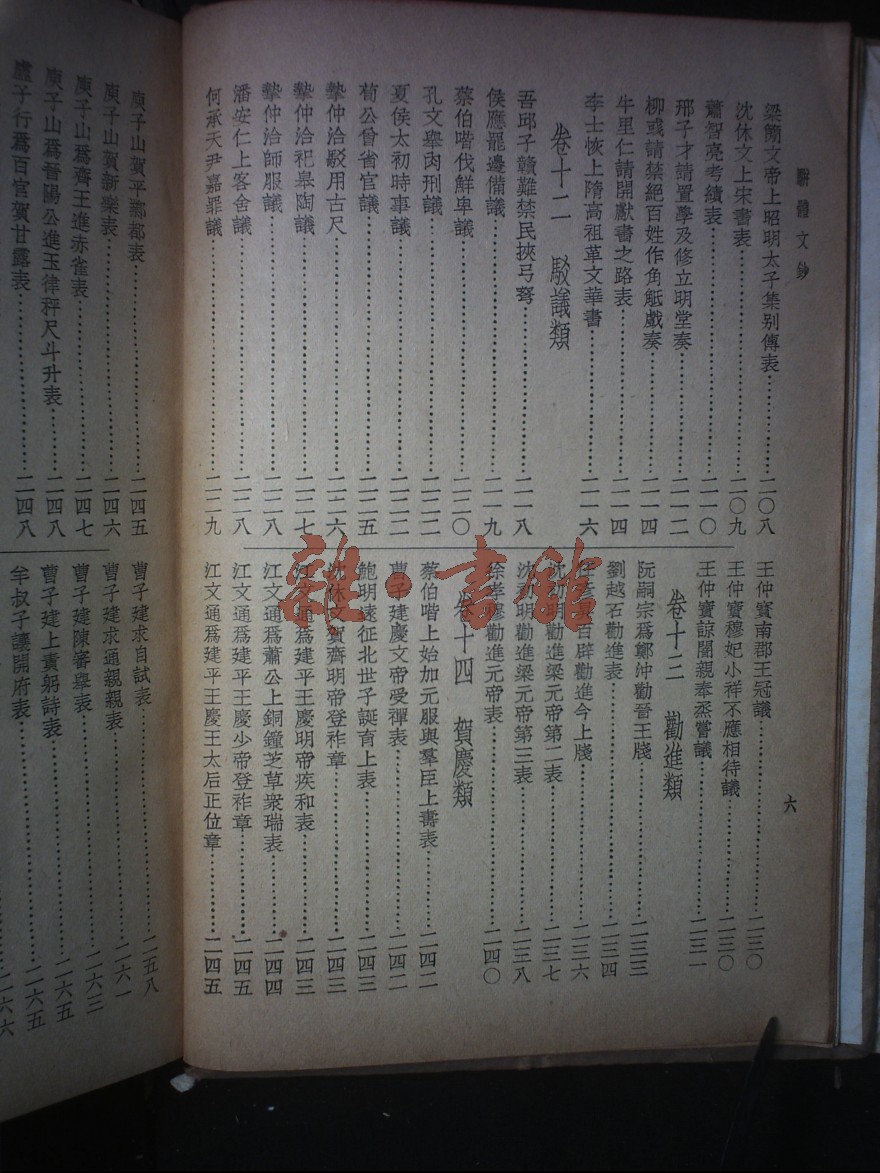 駢體文鈔
六
梁簡文帝上昭明太子集別傳表……二〇八
沈休文上宋書表……二〇九
蕭智亮考績表……二一〇
邢子才請置學及修立明堂奏……二一二
柳彧請禁絕百姓作角觝戲奏……二一四
牛里仁請開獻書之路表……二一四
李士恢上隋高祖革文華書……二一六
卷十二 駁議類
吾邱子贛難禁民挾弓弩……二一八
侯應罷邊備議……二一九
蔡伯喈伐鮮卑議……二二〇
孔文舉肉刑議……二二二
夏侯太初時事議……二二二
荀公曾省官議……二二五
摯仲洽駁用古尺……二二六
摯仲洽祀皋陶議……二二七
摯仲洽師服議……二二八
潘安仁上客舍議……二二八
何承天尹嘉罪議……二二九
王仲寶南郡王冠議……二三〇
王仲寶穆妃小祥不應相待議……二三〇
王仲寶諒闇親奉烝嘗議……二三一
卷十三 勸進類
阮嗣宗爲鄭沖勸晉王牋……二三三
劉越石勸進表……二三四
任彥昇百辟勸進今上牋……二三六
沈初明勸進梁元帝第二表……二三七
沈初明勸進梁元帝第三表……二三八
徐孝穆勸進元帝表……二四〇
卷十四 賀慶類
蔡伯喈上始加元服與羣臣上壽表……二四二
曹子建慶文帝受禪表……二四二
鮑明遠征北世子誕育上表……二四三
沈休文賀齊明帝登祚章……二四三
江文通爲建平王慶明帝疾和表……二四三
江文通爲蕭公上銅鐘芝草衆瑞表……二四四
江文通爲建平王慶少帝登祚章……二四五
江文通爲建平王慶王太后正位章……二四五
庾子山賀平鄴都表……二四五
庾子山賀新樂表……二四六
庾子山爲齊王進赤雀表……二四七
庾子山爲晉陽公進玉律秤尺斗升表……二四八
盧子行爲百官賀甘露表……二四八
曹子建求自試表……二五八
曹子建求通親親表……二六一
曹子建陳審舉表……二六三
曹子建上責躬詩表……二六五
羊叔子讓開府表……二六五
二六六